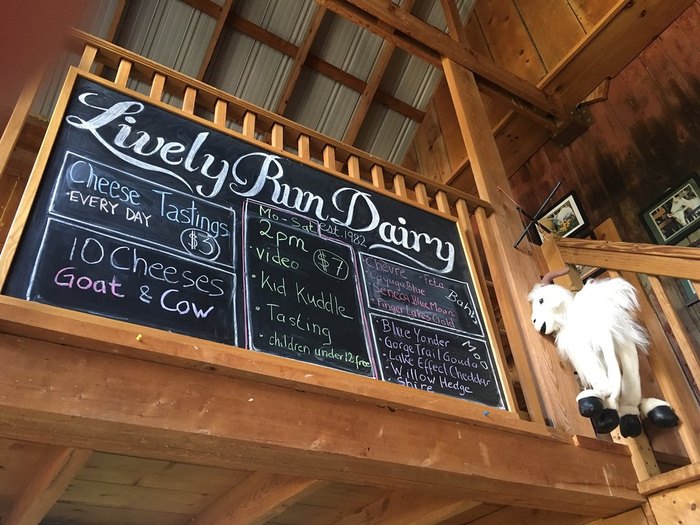 Lively Run Dairy
est. 1982
Cheese Tastings
·EVERY DAY
$3
10 Cheeses
Goat & Cow
Mo-Sat
2pm
$7
·video
·Kid Kuddle
·Tasting
·children under 12 free
Chèvre · Feta
Cayuga Blue
Seneca Blue Moon
·Finger Lakes Gold
Baa
Moo
·Blue Yonder
·Gorge Trail Gouda
·Lake Effect Cheddar
·Willow Hedge
·Shire